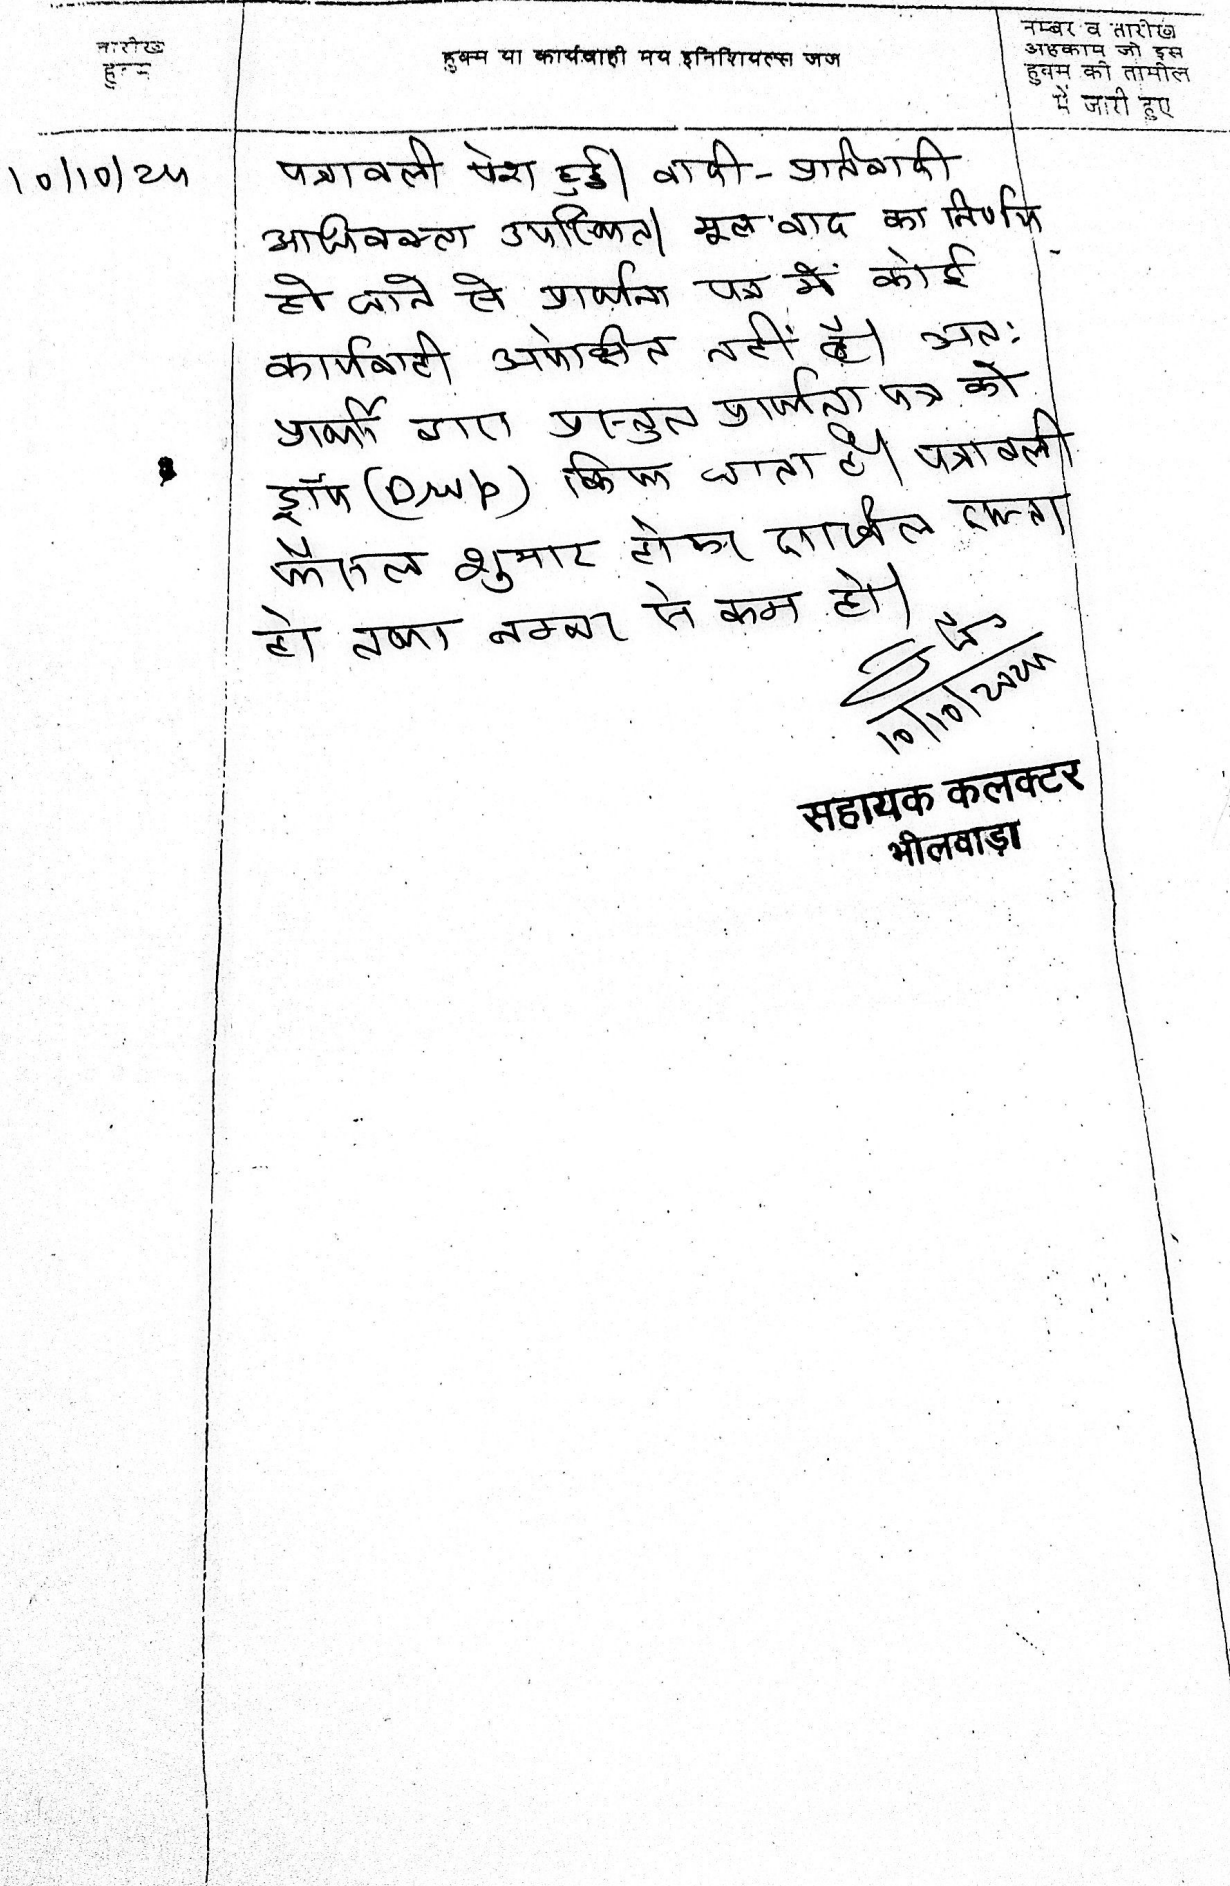 तारीख
हुक्म
हुक्म या कार्यवाही मय इनिशियल्स जज
नम्बर व तारीख
अहकाम जो इस
हुक्म की तामील
में जारी हुए
10/10/24
पत्रावली पेश हुई। वादी - प्रतिवादी
अधिवक्ता उपस्थित। मूल वाद का निर्णय
हो जाने से प्रार्थना पत्र में कोई
कार्यवाही अपेक्षित नहीं है। अतः
प्रार्थी द्वारा प्रस्तुत प्रार्थना पत्र को
ड्रॉप (Drop) किया जाता है। पत्रावली
फैसल शुमार होकर दाखिल दफ्तर
हो तथा नम्बर से कम हो।
10/10/2024
सहायक कलक्टर
भीलवाड़ा